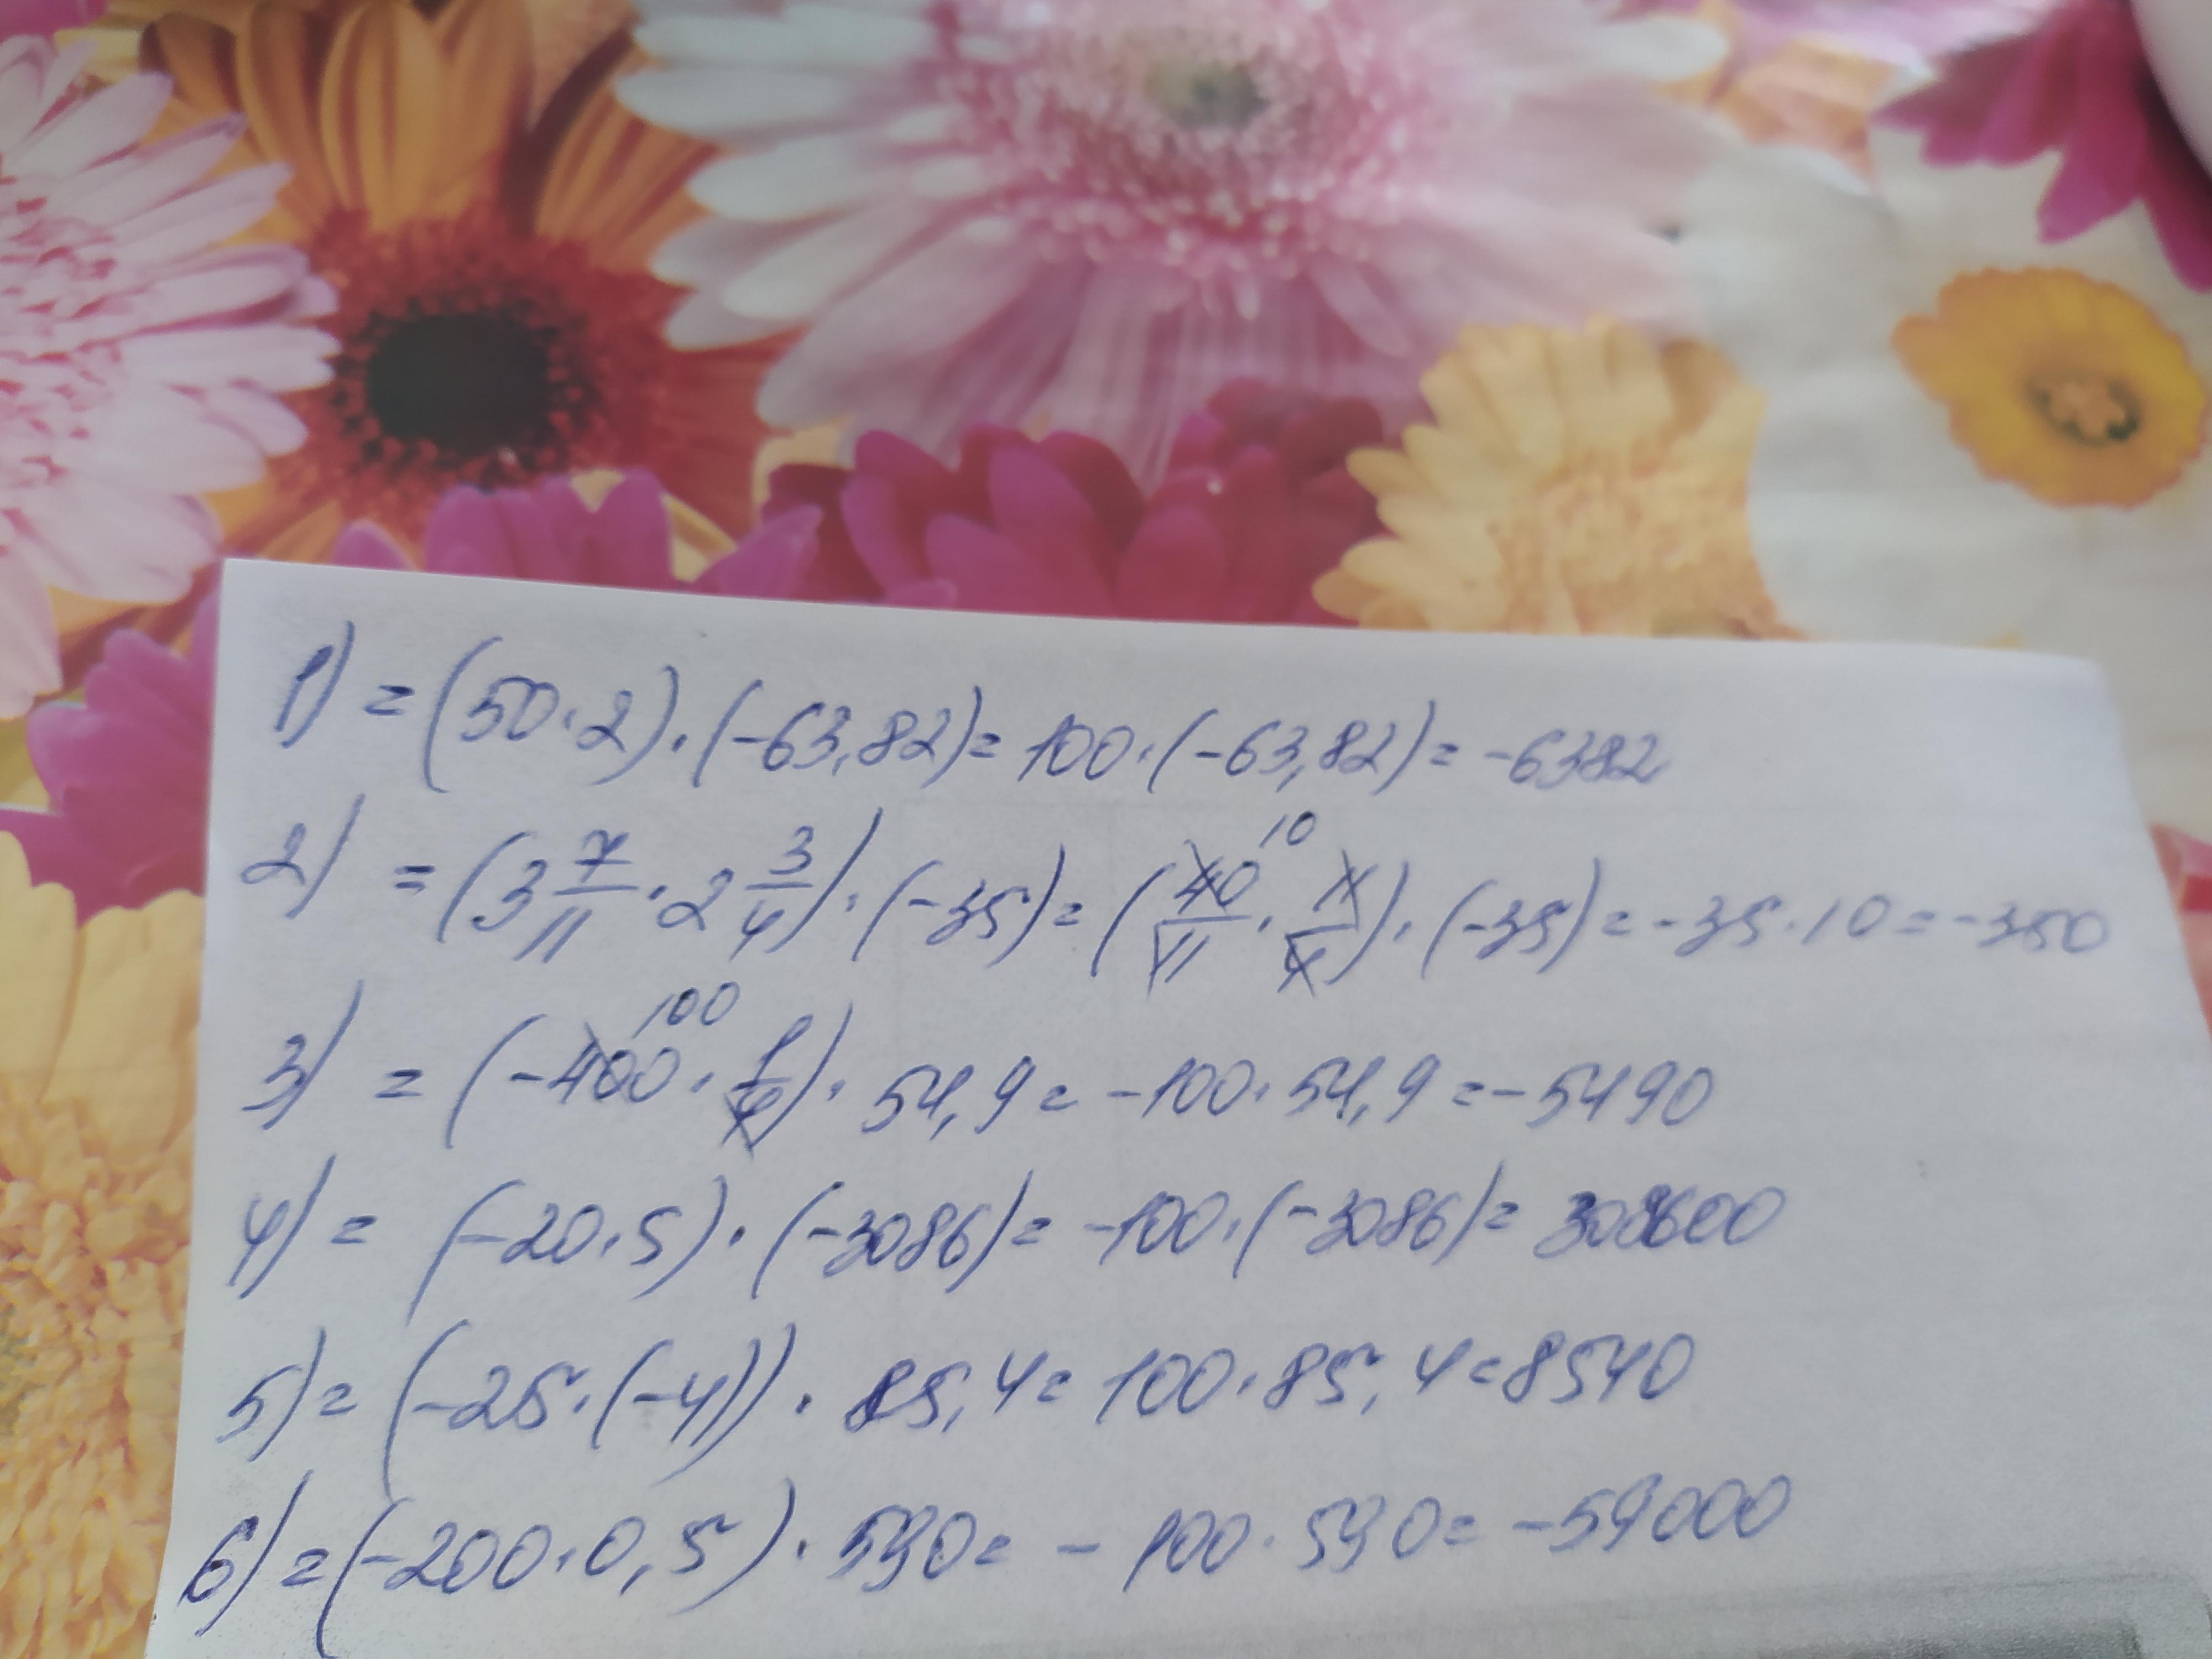 1) = (50·2)·(-63,82) = 100·(-63,82) = -6382
2) = (3 7/11 · 2 3/4)·(-35) = (40/11 · 11/4)·(-35) = -35·10 = -350
10
3) = (-400 · 1/4)· 54,9 = -100·54,9 = -5490
100
4) = (-20·5)·(-3086) = -100·(-3086) = 308600
5) = (-25·(-4))· 85,4 = 100·85,4 = 8540
6) = (-200·0,5)·590 = -100·590 = -59000